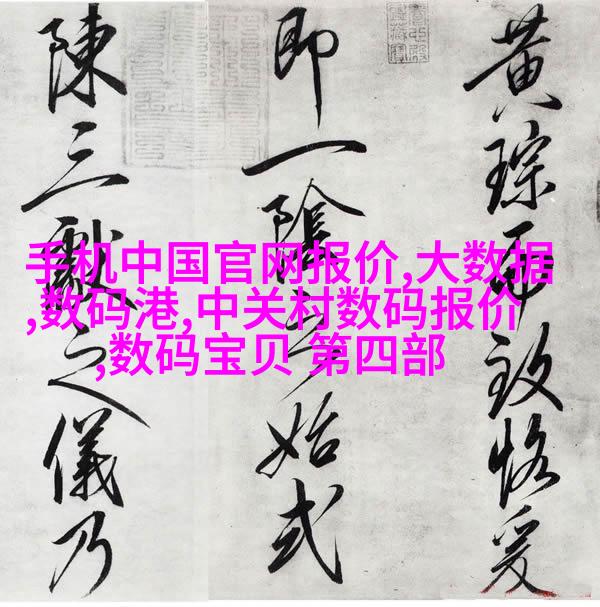 手机中国官网报价,大数据
,数码港,中关村数码报价
,数码宝贝 第四部
黄琮致恪爰
即一陰之始式
陳三獻之儀乃